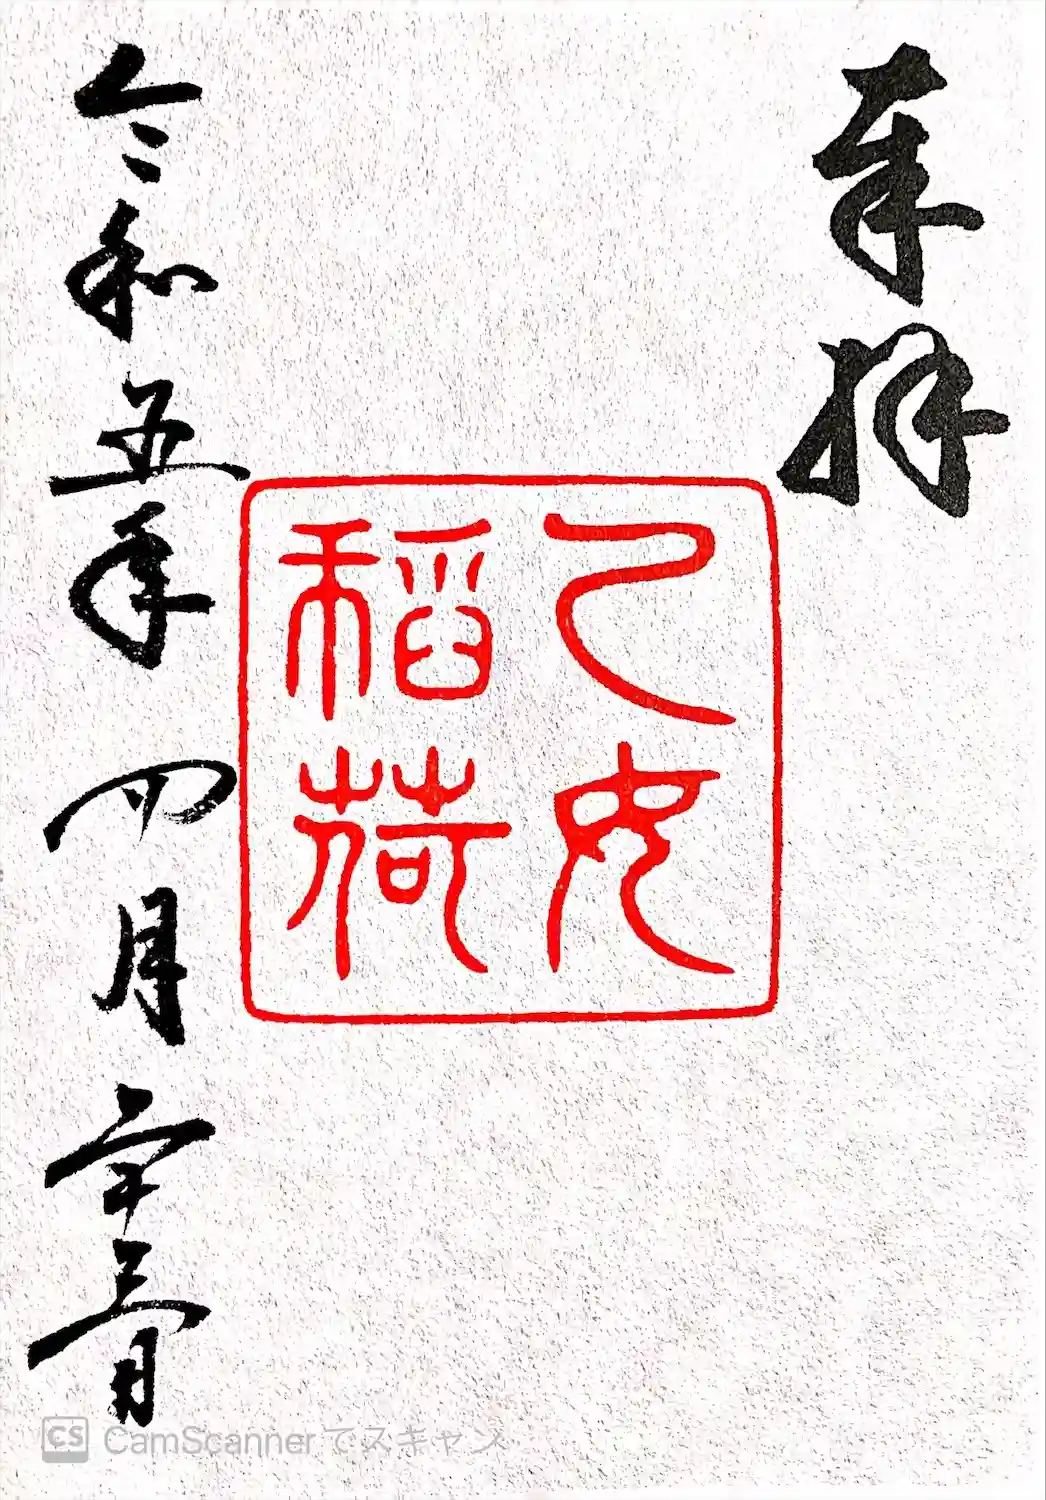 奉拝
乙女
稲荷
令和五年 四月二十三日
CS CamScannerでスキャン